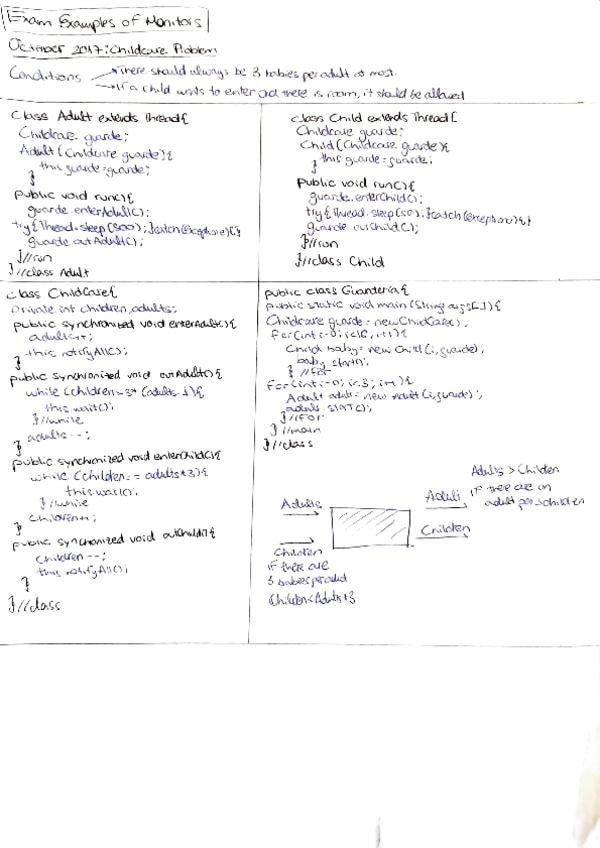 Exam Examples of Monitors
October 2017: Childcare Problem
Conditions
There should always be 3 babies per adult at most.
If a child wants to enter and there is room, it should be allowed
class Adult extends Thread{
Childcare guarde;
Adult (Childcare guarde){
this.guarde=guarde;
}
public void run(){
guarde.enterAdult();
try{Thread.sleep(500);}catch(Exception){}
guarde.outAdult();
}//run
}//class Adult
class Child extends Thread{
Childcare guarde;
Child (Childcare guarde){
this.guarde=guarde;
}
public void run(){
guarde.enterChild();
try{Thread.sleep(50);}catch(exception){}
guarde.outChild();
}//run
}//class Child
class ChildCare{
private int children,adults;
public synchronized void enterAdult(){
adults++;
this.notifyAll();
}
public synchronized void outAdult(){
while (children 3* (adults-1){
this.wait();
}//while
adults--;
}
public synchronized void enterChild(){
while (children == adults*3){
this.wait();
}//while
children++;
}
public synchronized void outChild(){
children--;
this.notifyAll();
}
}//class
public class Guarderia{
public static void main(String args[]){
Childcare guarde = new ChildCare();
for(int i=0; i<10; i++){
Child baby = new Child(i,guarde);
baby.start();
} //for
for(int i=0; i<3; i++){
Adult adult = new Adult(i,guarde);
adult.start();
}//for
}//main
}//class
Adults
Children
if there are
3 babies per adult
Children<Adults*3
Adult
Children
Adults > Children
if there are an
adult per children